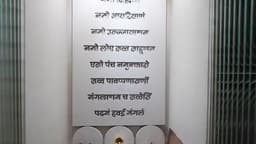 नमो आयरियाणं
नमो उवज्झायाणं
नमो लोए सव्व साहूणं
एसो पंच नमुक्कारो
सव्व पावप्पणासणो
मंगलाणं च सव्वेसिं
पढमं हवई मंगलं